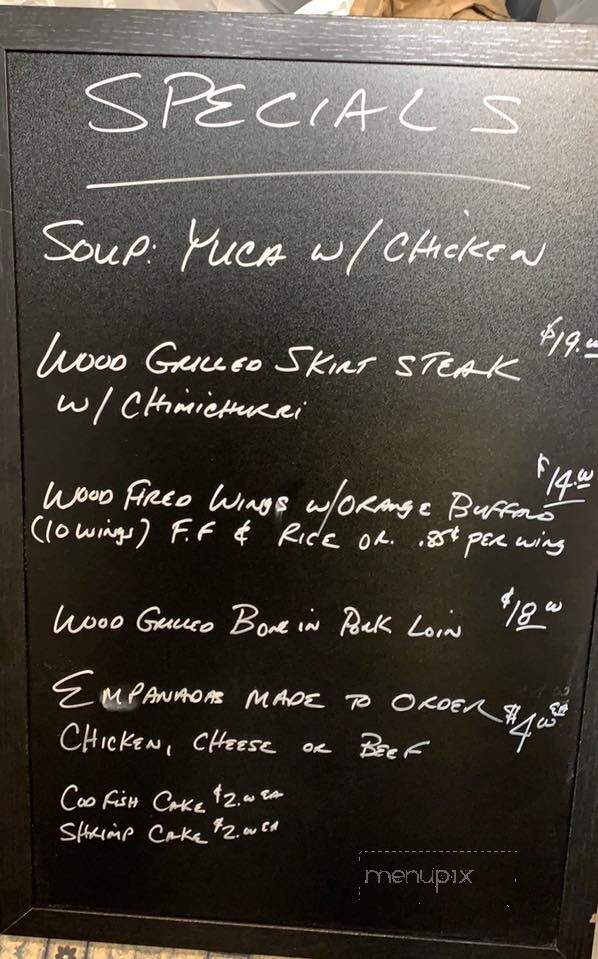 SPECIALS
SOUP: YUCA W/ CHICKEN
$19.00
WOOD GRILLED SKIRT STEAK
W/ CHIMICHURRI
$14.00
WOOD FIRED WINGS W/ORANGE BUFFALO
(10 wings) F.F & RICE OR. .85¢ PER wing
WOOD GRILLED BONE IN PORK LOIN $18.00
EMPANADAS MADE TO ORDER $4.00 EA
CHICKEN, CHEESE OR BEEF
COD FISH CAKE $2.00 EA
SHRIMP CAKE $2.00 EA
menupix